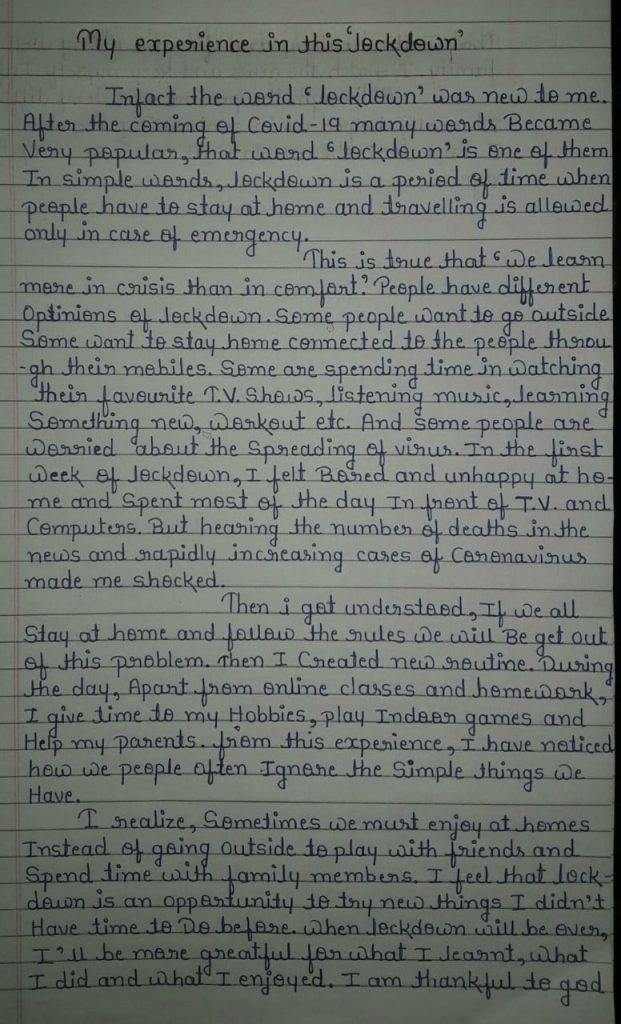 My experience in this 'lockdown'
Infact the word 'lockdown' was new to me.
After the coming of Covid-19 many words Became
Very popular, that word 'lockdown' is one of them
In simple words, lockdown is a period of time when
people have to stay at home and travelling is allowed
only in case of emergency.
This is true that 'we learn
more in crisis than in comfort.' People have different
Optinions of lockdown. Some people want to go outside
Some want to stay home connected to the people throu
-gh their mobiles. Some are spending time in watching
their favourite T.V. Shows, listening music, learning
Something new, workout etc. And some people are
worried about the Spreading of virus. In the first
week of lockdown, I felt Bored and unhappy at ho-
me and Spent most of the day In front of T.V. and
Computers. But hearing the number of deaths in the
news and rapidly increasing cases of Coronavirus
made me shocked.
Then i got understood, If we all
Stay at home and follow the rules we will Be get out
of this problem. Then I Created new routine. During
the day, Apart from online classes and homework,
I give time to my Hobbies, play Indoor games and
Help my parents. from this experience, I have noticed
how we people often Ignore the Simple things we
Have.
I realize, Sometimes we must enjoy at homes
Instead of going outside to play with friends and
Spend time with family members. I feel that lock-
down is an opportunity to try new things I didn't
Have time to Do before. when lockdown will be over,
I'll be more greatful for what I learnt, what
I did and what I enjoyed. I am thankful to god